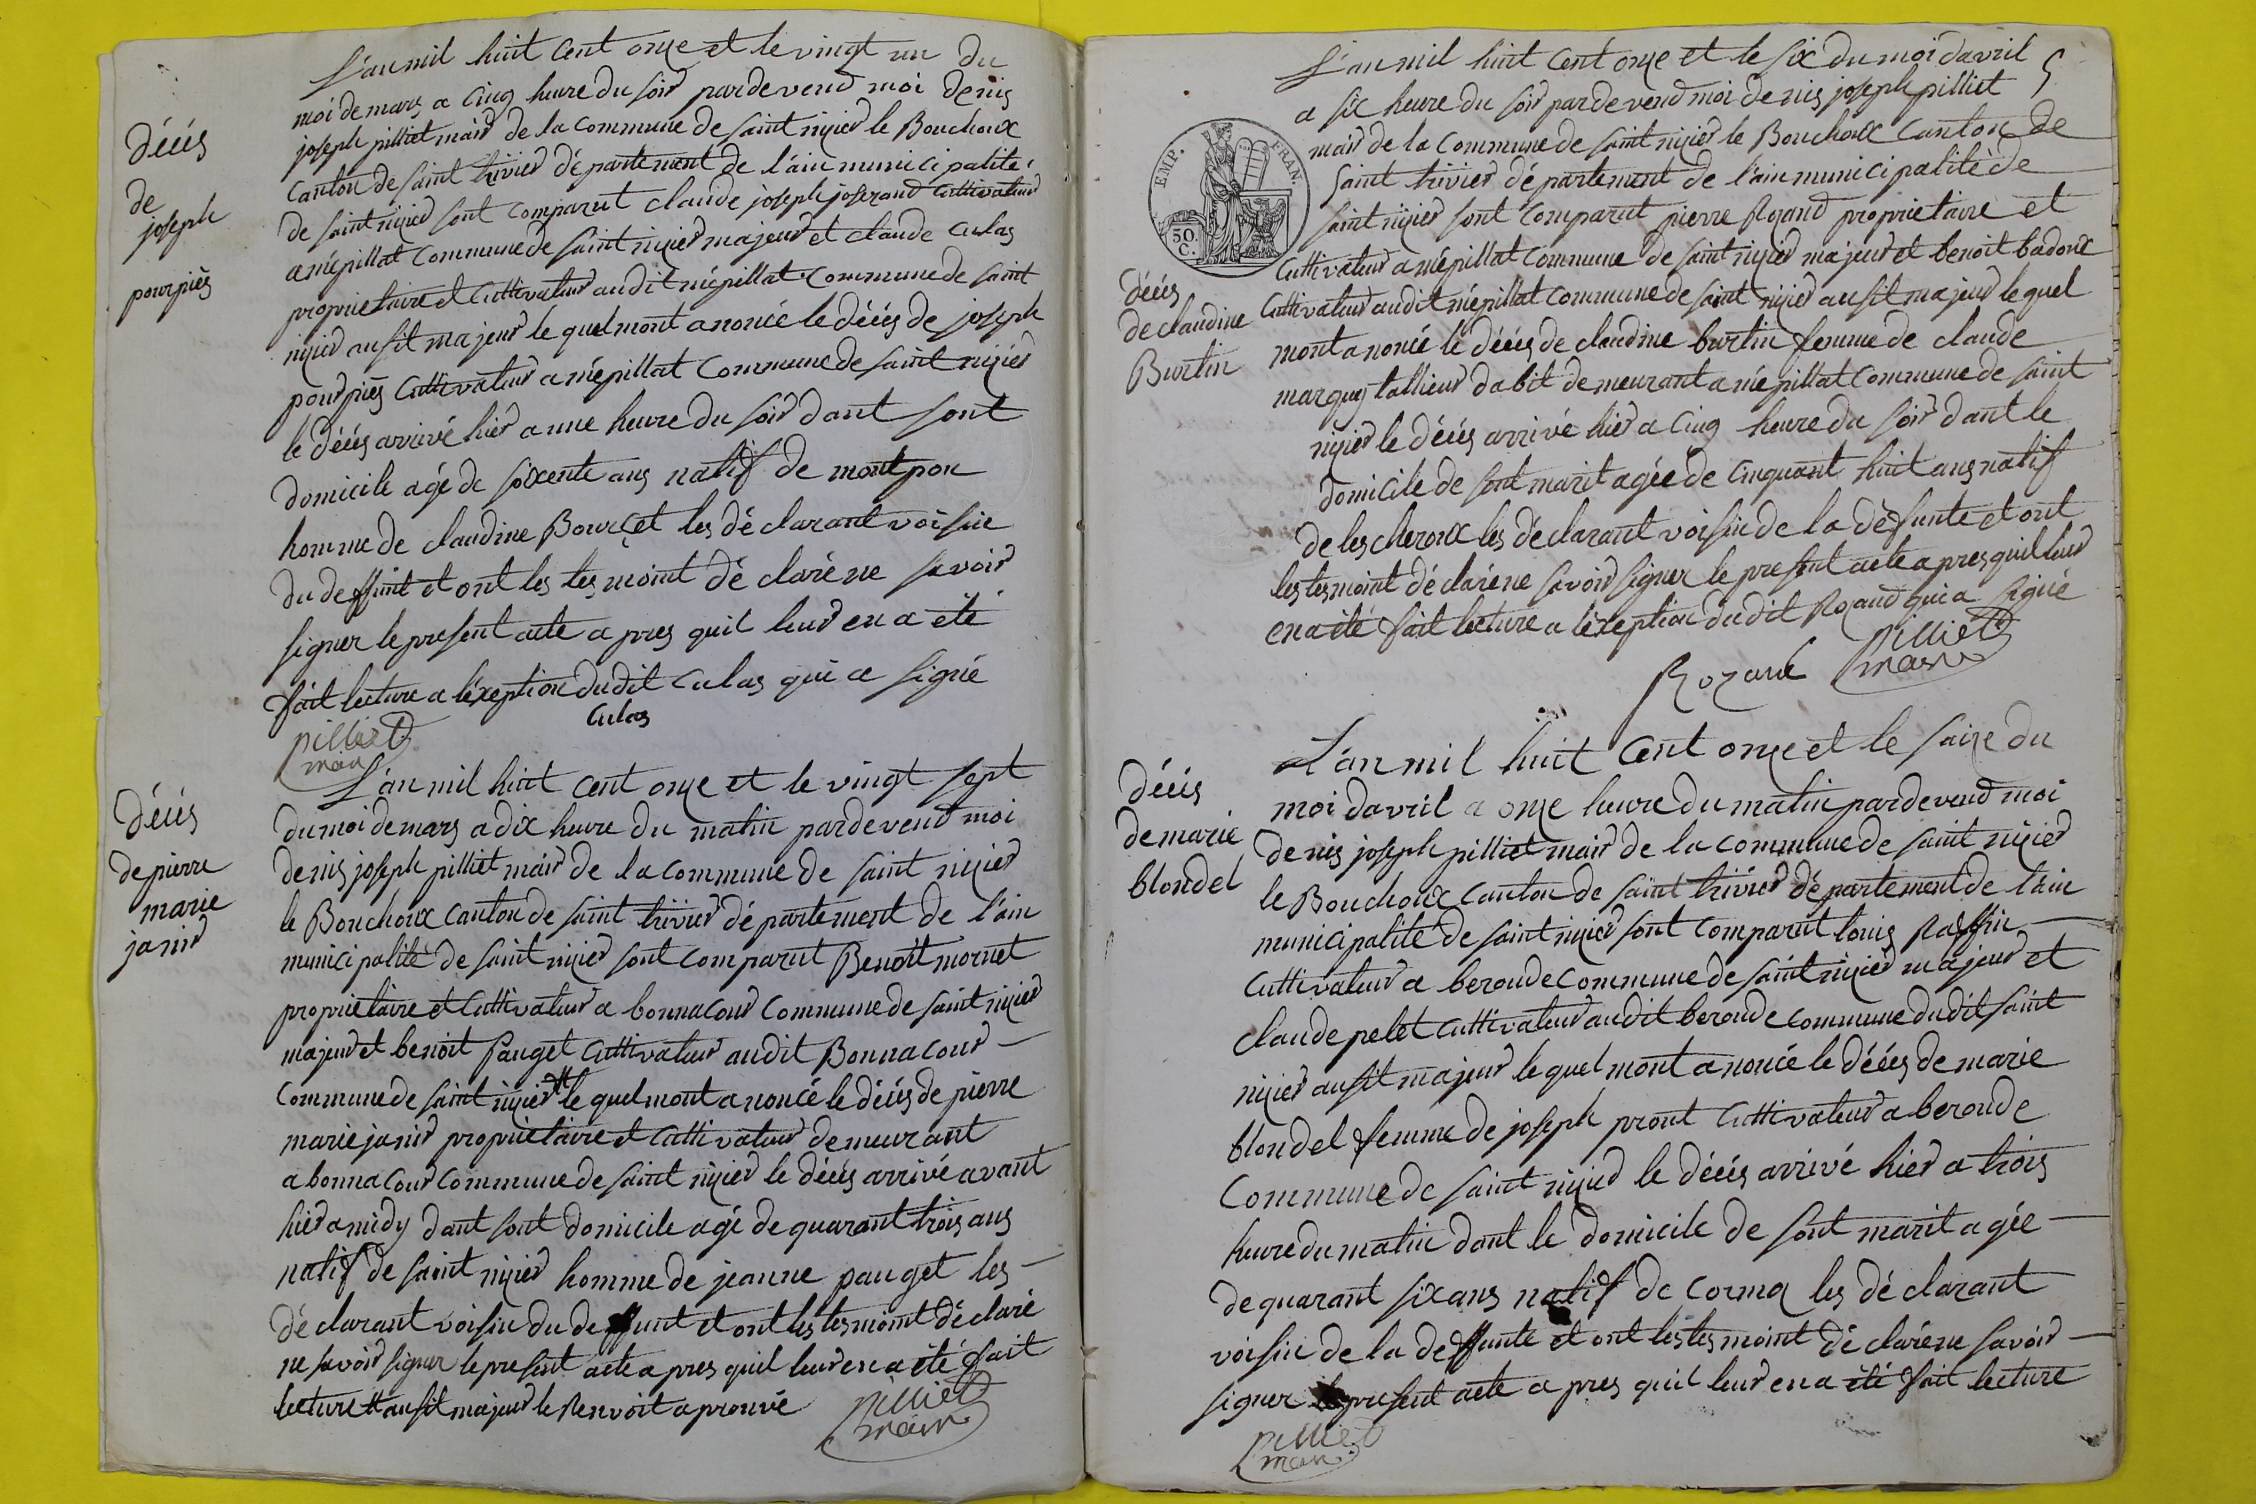 L'an mil huit cent onze et le vingt un du
moi de mars a cinq heure du soir pardevend moi denis
joseph pilliet mair de la commune de saint nizier le Bouchoux
canton de saint trivier département de l'ain municipalité
de saint nizier sont comparut claude joseph joserand cultivateur
a mépillat commune de saint nizier majeur et claude culas
proprietaire et cultivateur audit mépillat commune de saint
nizier ausit majeur le quel mont anoncé le déces de joseph
pourpiès cultivateur a mépillat commune de saint nizier
le déces arrivé hier a une heure du soir dant sont
domicile agé de soixente ans natif de montpon
homme de claudine Bourcet les déclarant voisin
du deffunt et ont les tesmoint déclaré ne savoir
signer le present acte a pres quil leur en a été
fait lecture a léxeption dudit culas qui a signé
culas
pilliet
mair
décés
de
joseph
pourpiès
L'an mil huit cent onze et le vingt sept
du moi de mars a dix heure du matin pardevend moi
denis joseph pilliet mair de la commune de saint nizier
le Bouchoux canton de saint trivier département de l'ain
municipalité de saint nizier sont comparut Benoit mornet
proprietaire et cultivateur a bonnacour commune de saint nizier
majeur et benoit Pauget cultivateur audit Bonnacour
commune de saint nizier # le quel mont anoncé le déces de pierre
marie janir proprietaire et cultivateur demeurant
a bonnacour commune de saint nizier le déces arrivé avant
hier a midy dant sont domicile agé de quarant trois ans
natif de saint nizier homme de jeanne pauget les
déclarant voisin du deffunt et ont les tesmoint déclaré
ne savoir signer le present acte a pres quil leur en a été fait
lecture # ausit majeur le Renvoit aprouvé
pilliet
mair
décés
de pierre
marie
janir
5
L'an mil huit cent onze et le six du moi davril
a six heure du soir pardevend moi denis joseph pilliet
mair de la commune de saint nizier le Bouchoux canton de
saint trivier département de l'ain municipalité de
saint nizier sont comparut pierre Rozand proprietaire et
cultivateur a mépillat commune de saint nizier majeur et benoit badoux
cultivateur audit mépillat commune de saint nizier ausit majeur le quel
mont anoncé le déces de claudine burtin femme de claude
marquej tallieur dabit demeurant a mépillat commune de saint
nizier le déces arrivé hier a cinq heure du soir dant le
domicile de sont marit agée de cinquant huit ans natif
de lescheroux les déclarant voisin de la défunte et ont
les tesmoint déclaré ne savoir signer le present acte a pres quil leur
en a été fait lecture a léxeption dudit Rozand qui a signé
Rozand
pilliet
mair
EMP. FRAN.
50.
C.
décés
de claudine
Burtin
L'an mil huit cent onze et le saize du
moi davril a onze heure du matin pardevend moi
denis joseph pilliet mair de la commune de saint nizier
le Bouchoux canton de saint trivier département de l'ain
municipalité de saint nizier sont comparut louis Raffin
cultivateur a beronde commune de saint nizier majeur et
claude pelet cultivateur audit beronde commune dudit saint
nizier ausit majeur le quel mont anoncé le déces de marie
blondel femme de joseph pront cultivateur a beronde
commune de saint nizier le déces arrivé hier a trois
heure du matin dant le domicile de sont marit agée
de quarant six ans natif de cormoz les déclarant
voisin de la deffunte et ont les tesmoint déclaré ne savoir
signer le present acte a pres quil leur en a été fait lecture
pilliet
mair
décés
de marie
blondel